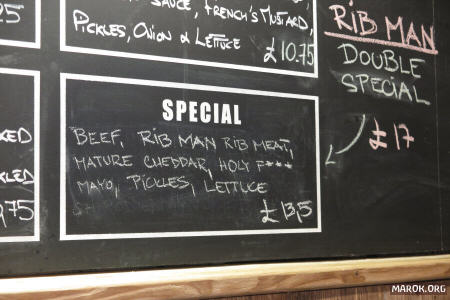 SAUCE, FRENCH'S MUSTARD,
PICKLES, ONION & LETTUCE
£10.75
SPECIAL
BEEF, RIB MAN RIB MEAT,
MATURE CHEDDAR, HOLY F***
MAYO, PICKLES, LETTUCE
£13,5
RIB MAN
DOUBLE
SPECIAL
£17
KED
KLED
,75
MAROK.ORG